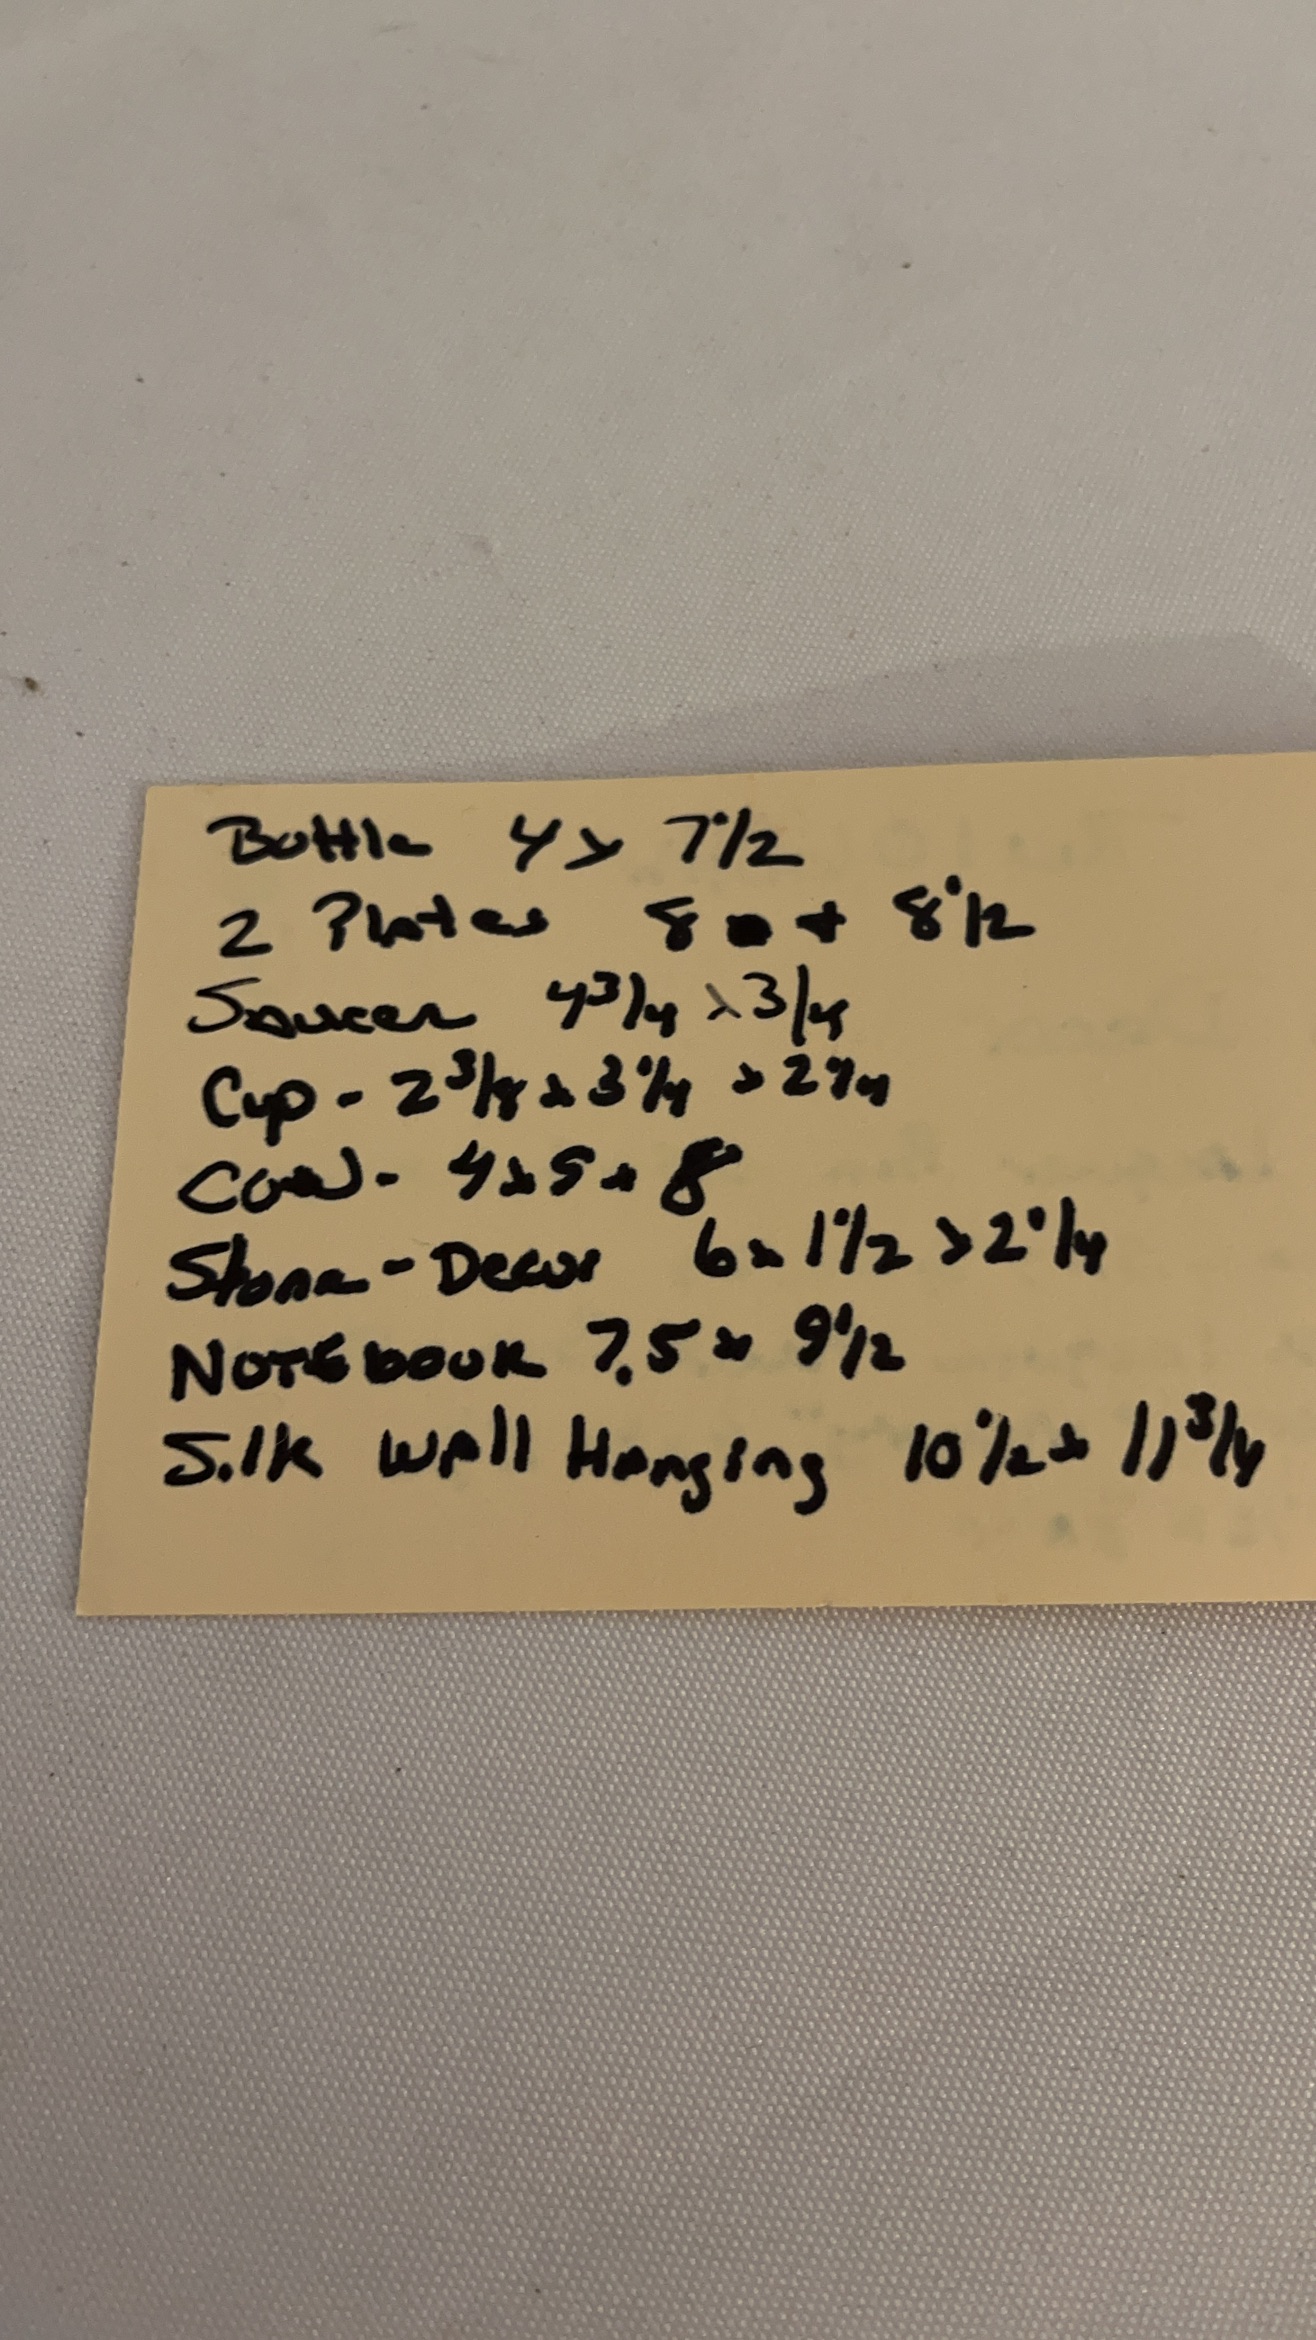 Bottle 4 x 7 1/2
2 Plates 8 + 8 1/2
Saucer 4 3/4 x 3/4
Cup - 2 3/8 x 3 1/4 x 2 1/4
Cow - 4 x 5 x 8
Stone - Decor 6 x 1 1/2 x 2 1/4
NOTEbook 7.5 x 9 1/2
Silk Wall Hanging 10 1/2 x 11 3/4